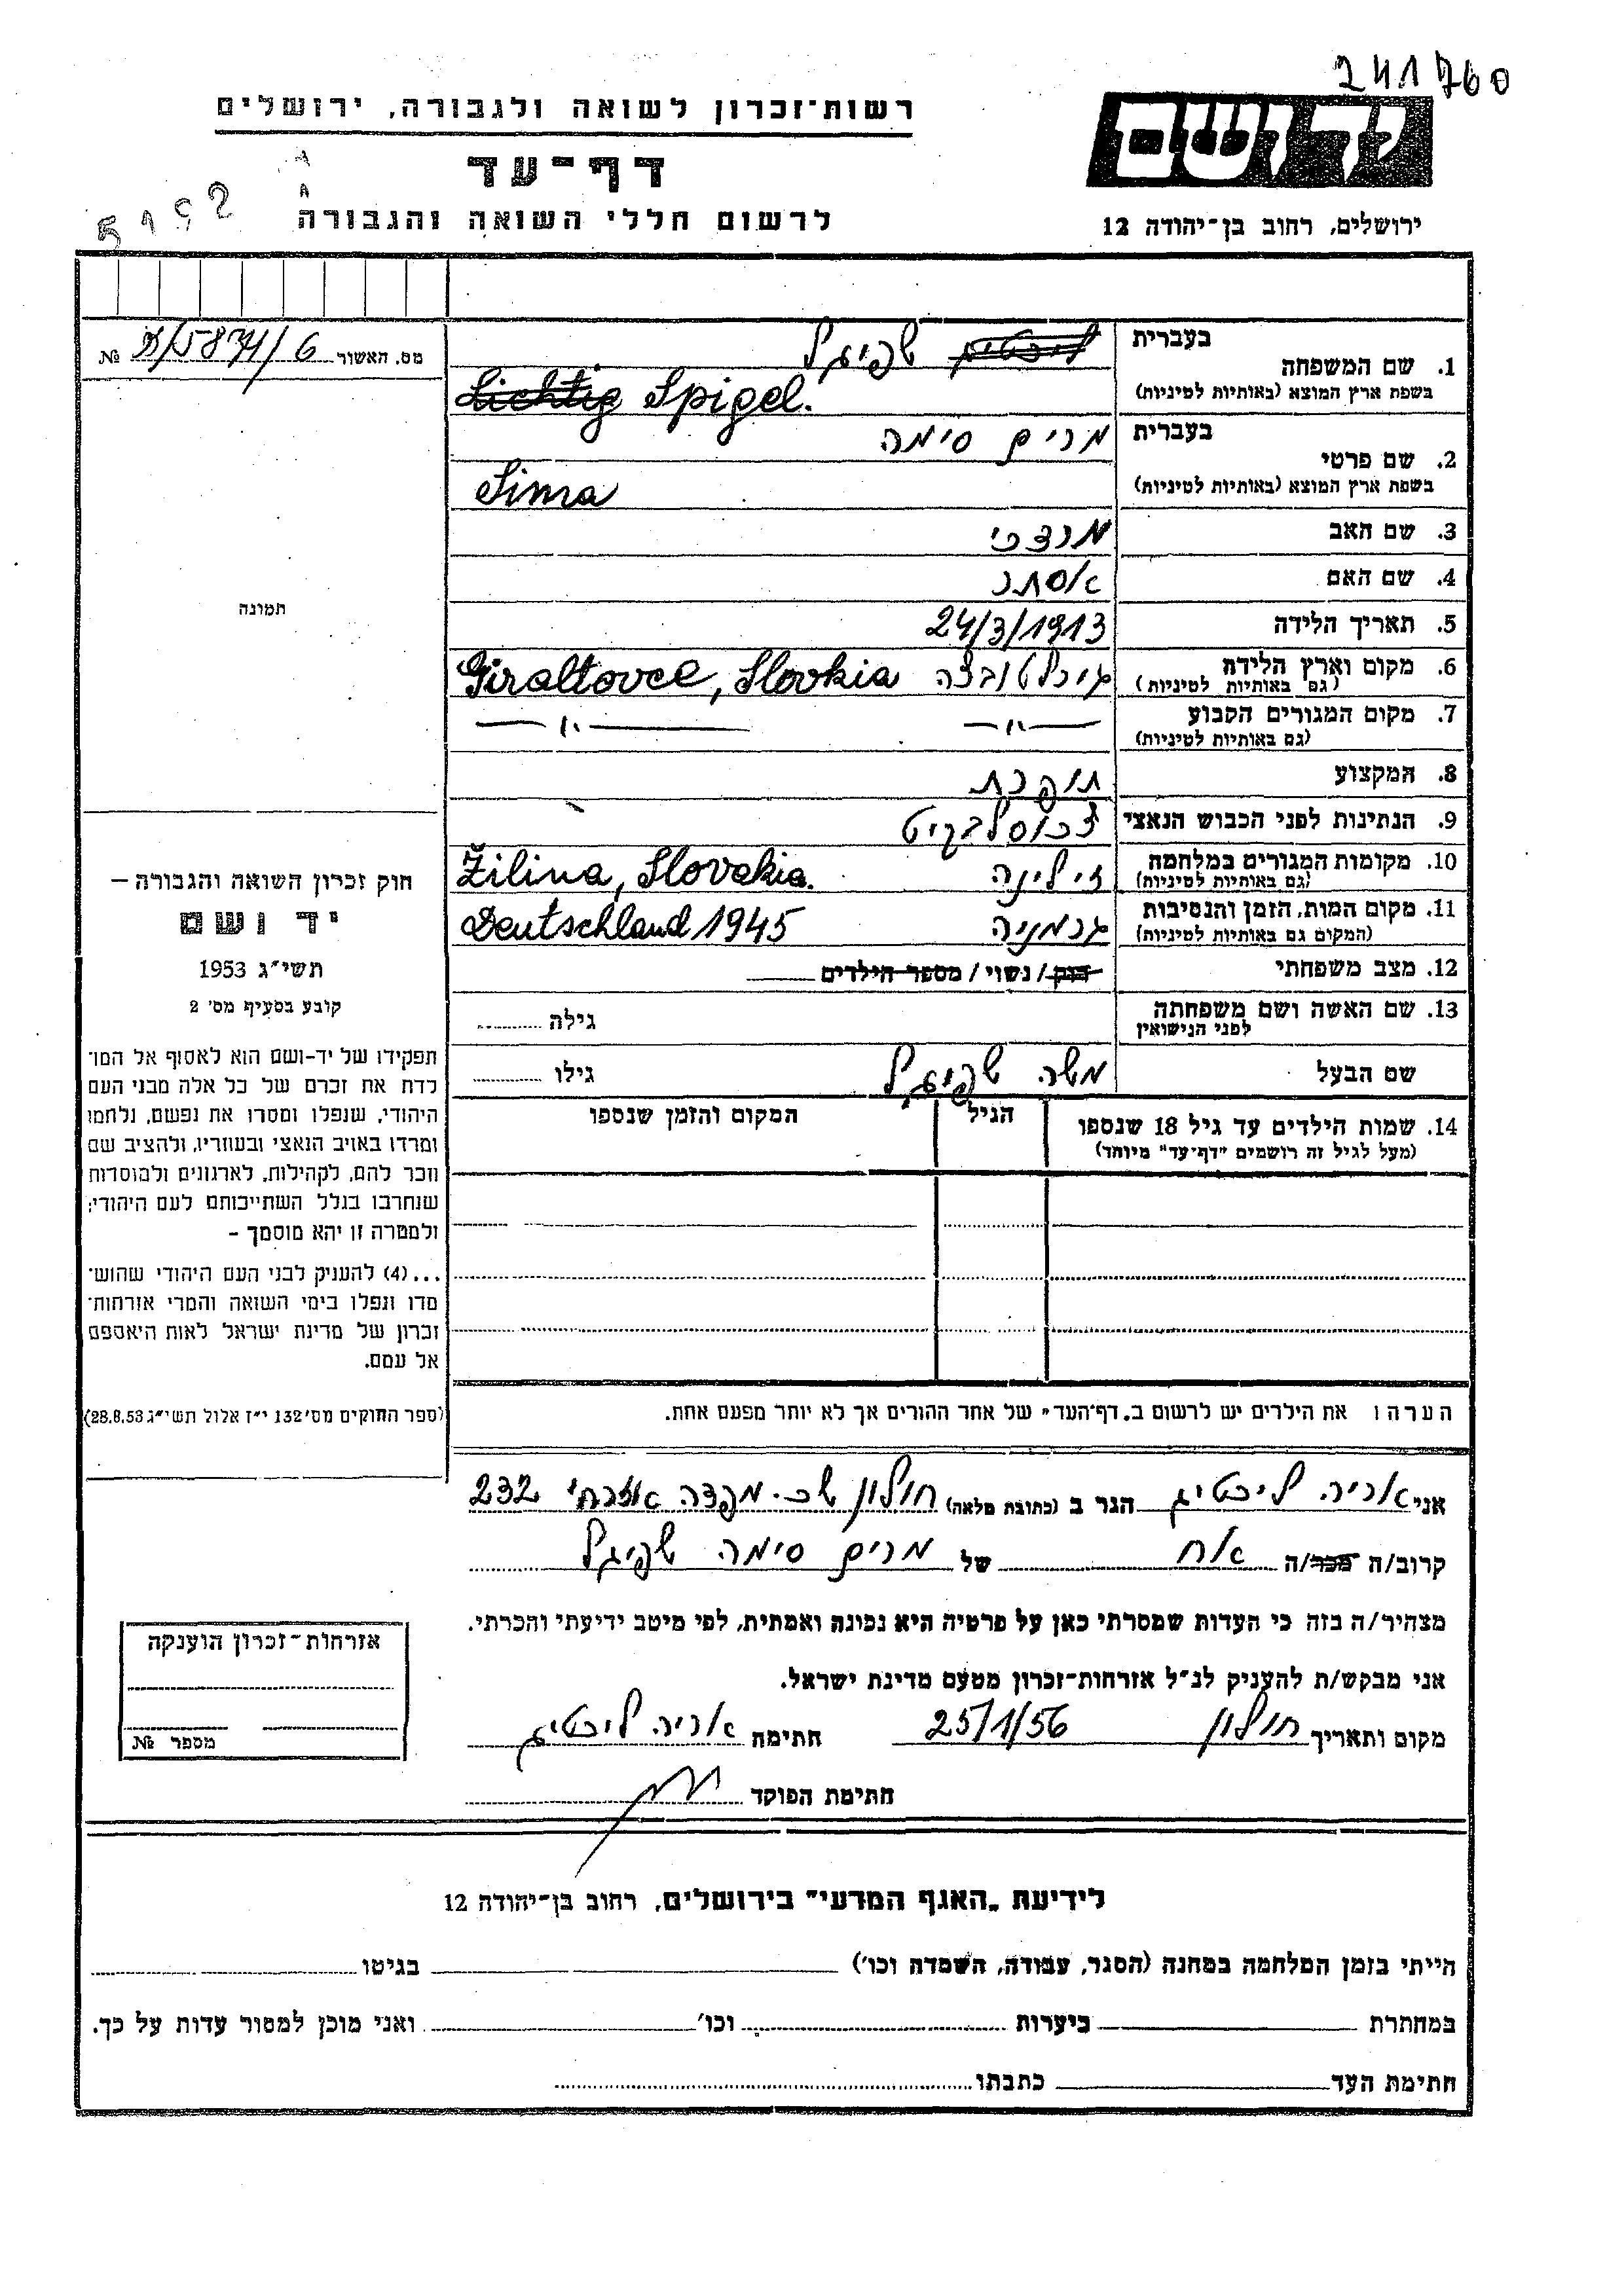 241760
רשות־זכרון לשואה ולגבורה, ירושלים
ידושם
דף־עד
5192
לרשום חללי השואה והגבורה
ירושלים, רחוב בן־יהודה 12
בעברית
ליכטיג שפיגל
1. שם המשפחה
בשפת ארץ המוצא (באותיות לטיניות)
Lichtig Spigel.
מס. האשור 6/5874/ №
בעברית
מרים סימה
2. שם פרטי
בשפת ארץ המוצא (באותיות לטיניות)
Sima
3. שם האב מרדכי
4. שם האם אסתר
5. תאריך הלידה 24/3/1913
6. מקום וארץ הלידה גירלטובצה Giraltovce, Slovkia
(גם באותיות לטיניות)
7. מקום המגורים הקבוע —״— —״—
(גם באותיות לטיניות)
8. המקצוע תופרת
9. הנתינות לפני הכבוש הנאצי
10. מקומות המגורים במלחמה זילינה Žilina, Slovakia.
(גם באותיות לטיניות)
11. מקום המות, הזמן והנסיבות גרמניה Deutschland 1945
(המקום גם באותיות לטיניות)
12. מצב משפחתי רוק / נשוי / מספר הילדים
13. שם האשה ושם משפחתה גילה
לפני הנישואין
שם הבעל משה שפיגל גילו
14. שמות הילדים עד גיל 18 שנספו הגיל המקום והזמן שנספו
(מעל לגיל זה רושמים "דף־עד" מיוחד)
תמונה
חוק זכרון השואה והגבורה —
יד ושם
תשי"ג 1953
קובע בסעיף מס' 2
תפקידו של יד-ושם הוא לאסוף אל המו־
לדת את זכרם של כל אלה מבני העם
היהודי, שנפלו ומסרו את נפשם, נלחמו
ומרדו באויב הנאצי ובעוזריו, ולהציב שם
וזכר להם, לקהילות, לארגונים ולמוסדות
שנחרבו בגלל השתייכותם לעם היהודי;
ולמטרה זו יהא מוסמך –
...(4) להעניק לבני העם היהודי שהוש־
מדו ונפלו בימי השואה והמרי אזרחות־
זכרון של מדינת ישראל לאות היאספם
אל עמם.
(ספר החוקים מס' 132 י"ז אלול תשי"ג 28.8.53)
הערה: את הילדים יש לרשום ב„דף־העד" של אחד ההורים אך לא יותר מפעם אחת.
אני אריה ליכטיג הגר ב (כתובת מלאה) חולון שכ. אזרחי 232
קרוב/ה מכר/ה אח של מרים סימה שפיגל
מצהיר/ה בזה כי העדות שמסרתי כאן על פרטיה היא נכונה ואמתית, לפי מיטב ידיעתי והכרתי.
אני מבקש/ת להעניק לנ"ל אזרחות־זכרון מטעם מדינת ישראל.
מקום ותאריך חולון 25/1/56 חתימה אריה ליכטיג
חתימת הפוקד
אזרחות־זכרון הוענקה
מספר №
לידיעת „האגף המדעי" בירושלים, רחוב בן־יהודה 12
הייתי בזמן המלחמה במחנה (הסגר, עבודה, השמדה וכו') בגיטו
במחתרת ביערות וכו' ואני מוכן למסור עדות על כך.
חתימת העד כתבתו